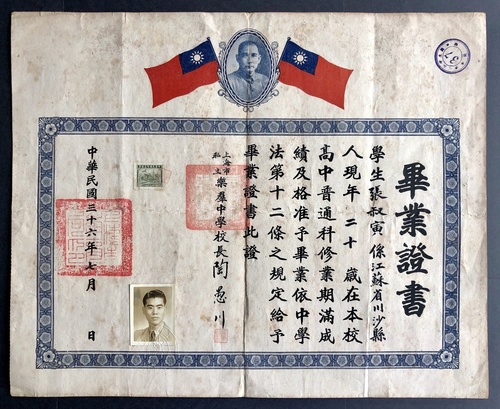 畢業證書
學生張叔寅係江蘇省川沙縣
人現年二十歲在本校
高中普通科修業期滿成
績及格准予畢業依中學
法第十二條之規定給予
畢業證書此證
上海市私立樂群中學校長陶愚川
中華民國三十六年七月 日